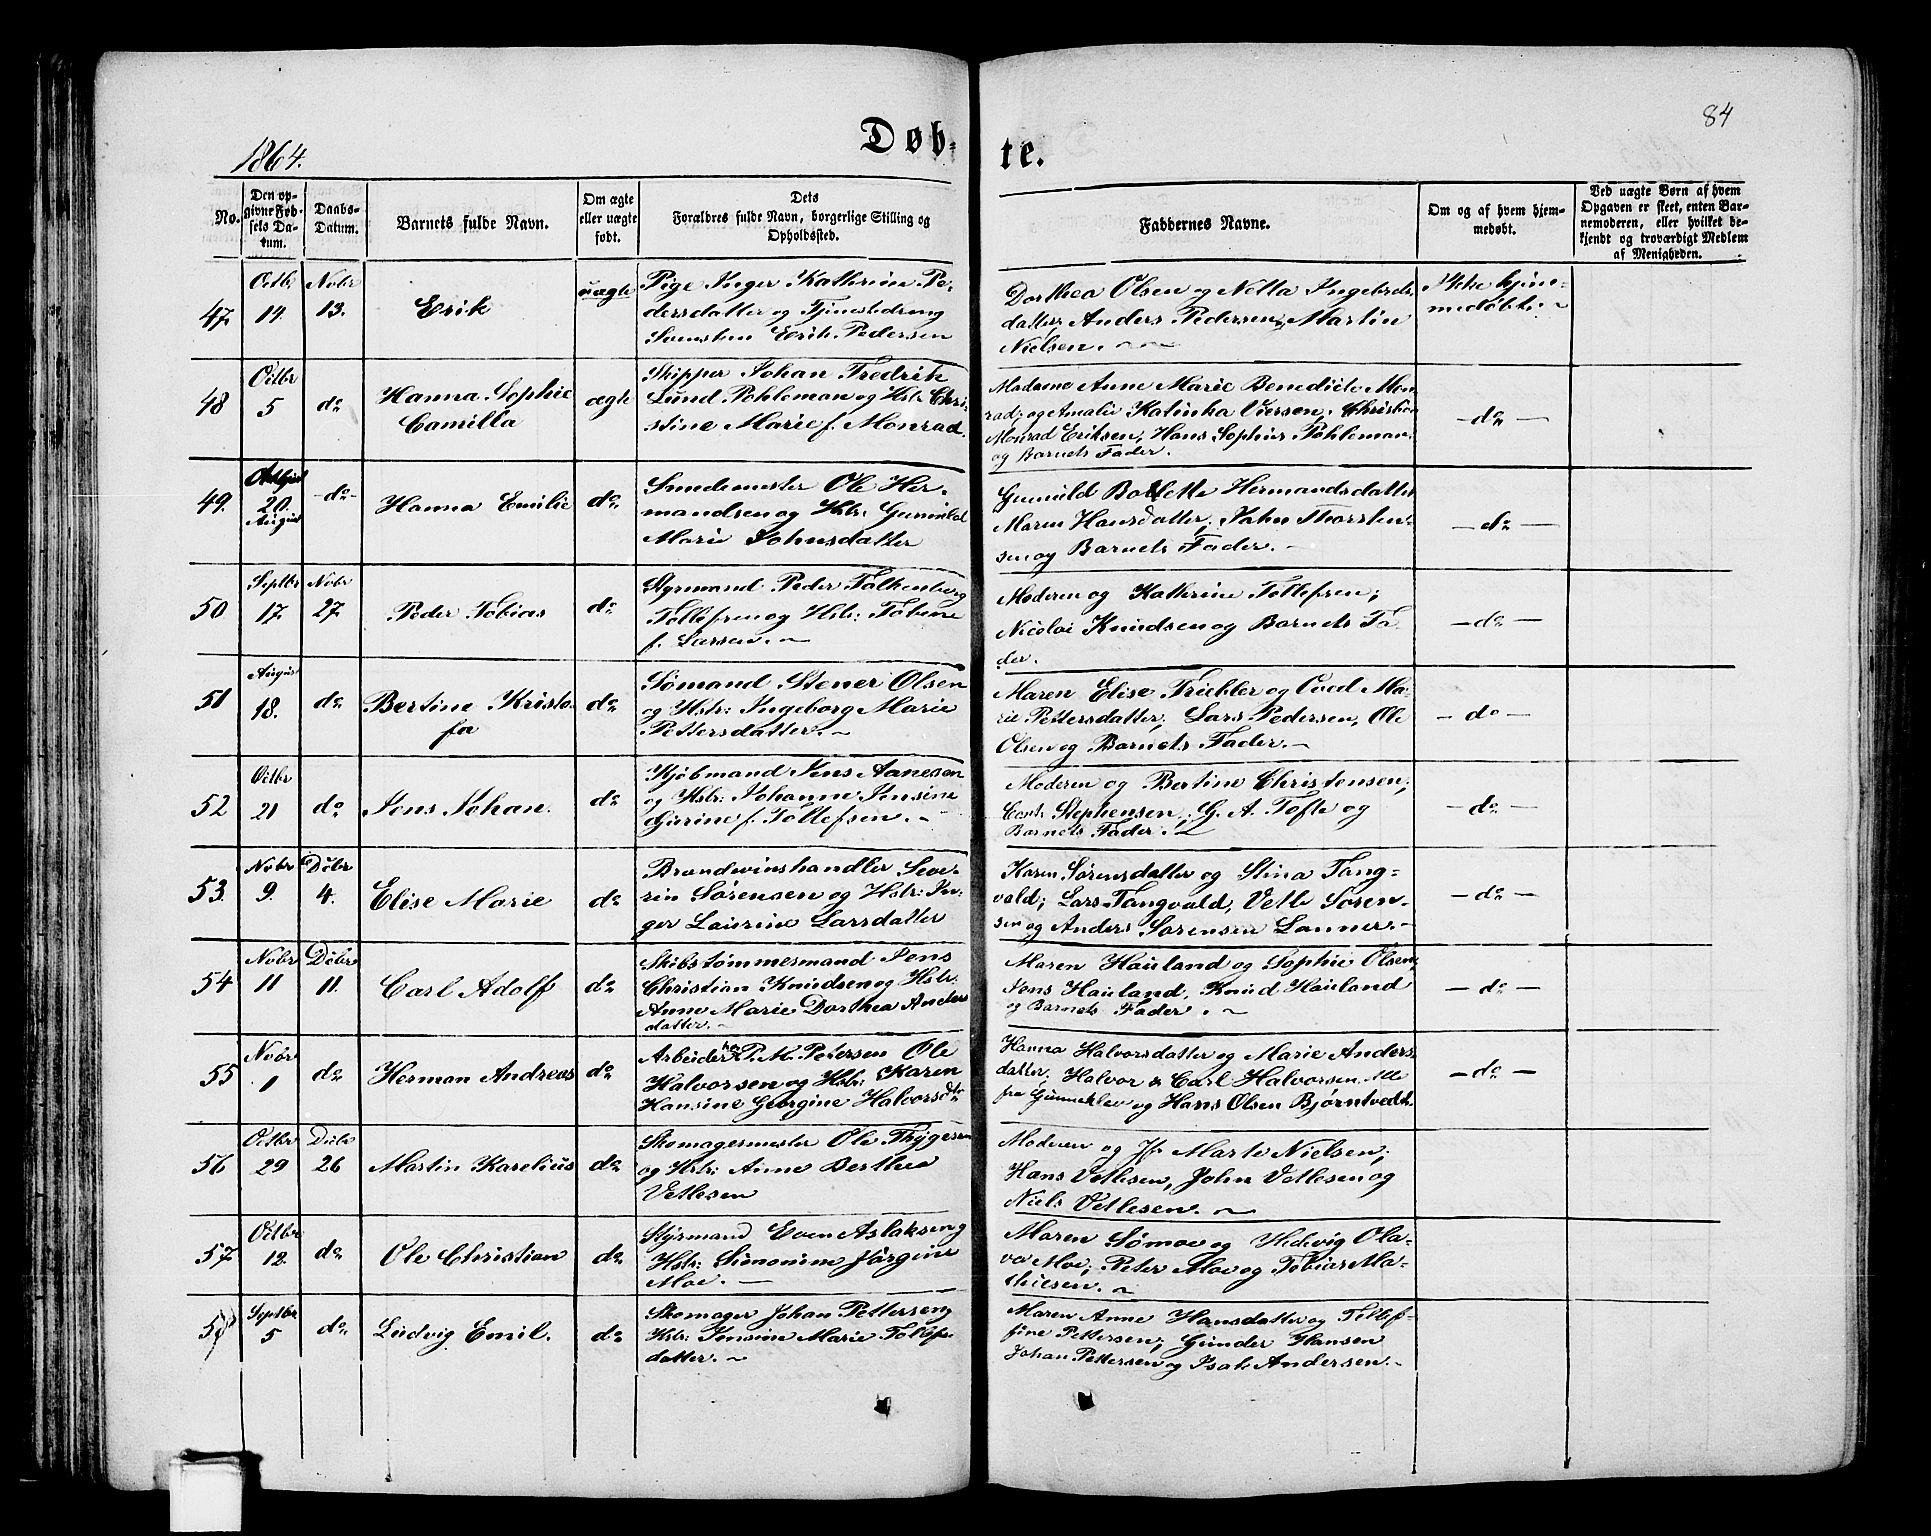 84
1864.
Døb-
te.
No.
Den op-
givne Fød-
sels Da-
tum.
Daabs-
Datum.
Barnets fulde Navn.
Om ægte
eller uægte
født.
Dets
Forældres fulde Navn, borgerlige Stilling og
Opholdssted.
Faddernes Navne.
Om og af hvem hjem-
medøbt.
Ved uægte Børn af hvem
Opgaven er skeet, enten Bar-
nemoderen, eller hvilket be-
kjendt og troværdigt Medlem
af Menigheden.
47
Octbr
14.
Nobr
13.
Erik
uægte
Pige Inger Kathrine Pe-
dersdatter og Tjenestedreng
Svensken Erik Pedersen
Dorthea Olsen og Netta Ingebrets-
datter; Anders Pedersen, Martin
Nielsen.
Ikke hjem-
medøbt.
48
Octbr
5
do
Hanna Sophie
Camilla
ægte
Skipper Johan Fredrik
Lund Pohleman og Hstr: Chri-
stine Marie f. Monrad.
Madame Anne Marie Benedicte Mon-
rad; og Amalie Katinka Viersen, Christian
Monrad Eriksen, Hans Sophus Pohleman
og Barnets Fader.
- do -
49.
20.
August
- do -
Hanna Emilie
do
Smedemester Ole Her-
mandsen og Hstr: Gunnild
Marie Johnsdatter
Gunuld Bollette Hermandsdatter
Maren Hansdatter; John Thorsten-
sen og Barnets Fader. -
- do -
50
Septbr
17
Nobr
27
Peder Tobias
do
Styrmand Peder Falkenberg
Tollefsen og Hstr: Tobine
f. Larsen.
Moderen og Kathrine Tollefsen;
Nicolai Knudsen og Barnets Fa-
der.
- do -
51
August
18.
do
Bertine Kristo-
fa
do
Sømand Stener Olsen
og Hstr: Ingeborg Marie
Pettersdatter.
Maren Elise Triebler og Oved Ma-
rie Pettersdatter, Lars Pedersen, Ole
Olsen og Barnets Fader. -
- do -
52
Octbr
21
do
Jens Johan.
do
Kjøbmand Jens Aanesen
og Hstr: Johanne Jensine
Gurine f. Tollefsen. -
Moderen og Bertine Christensen;
Stephensen, G. A. Tofte og
Barnets Fader.
- do -
53.
Nobr
9.
Debr
4.
Elise Marie
do
Brændevinshandler Seve-
rin Sørensen og Hstr: In-
ger Laurine Larsdatter
Karen Sørensdatter og Stina Tang-
vald; Lars Tangvald, Vetle Søren-
sen og Anders Sørensen Lanner. -
- do -
54
Nobr
11
Debr
11.
Carl Adolf
do
Skibstømmermand Jens
Christian Knudsen og Hstr:
Anne Marie Dorthea Anders
datter. -
Maren Hauland og Sophie Olsen;
Jens Hauland, Knud Hauland
og Barnets Fader.
- do -
55
Nobr
1
do
Herman Andreas
do
Arbeider hos P. M. Petersen Ole
Halvorsen og Hstr: Karen
Hansine Georgine Halvorsdtr
Hanna Halvorsdatter og Marie Anders
datter; Halvor & Carl Halvorsen Alle
fra Gunneklev og Hans Olsen Bjørntvedt.
- do -
56
Octbr
29
Debr
26
Martin Karelius
do
Skomagermester Ole Thygesen
og Hstr: Anne Berthea
Vetlesen
Moderen og Jfr Marte Nielsen;
Hans Vetlesen, John Vetlesen og
Niels Vetlesen.
57
Octbr
12.
do
Ole Christian
do
Styrmand Even Aslaksen og
Hstr: Simonine Jörgine
Moe. -
Maren Sømoe og Hedvig Ola-
va Moe; Peter Moe og Tobias Ma-
thiesen.
58
Septbr
5
do
Ludvig Emil.
do
Skomager Johan Pettersen og
Hstr: Jensine Marie Tollefs
datter. -
Maren Anne Hansdatter og Tollef-
fine Pettersen; Gunder Hansen
Johan Pettersen og Isak Andersen. -